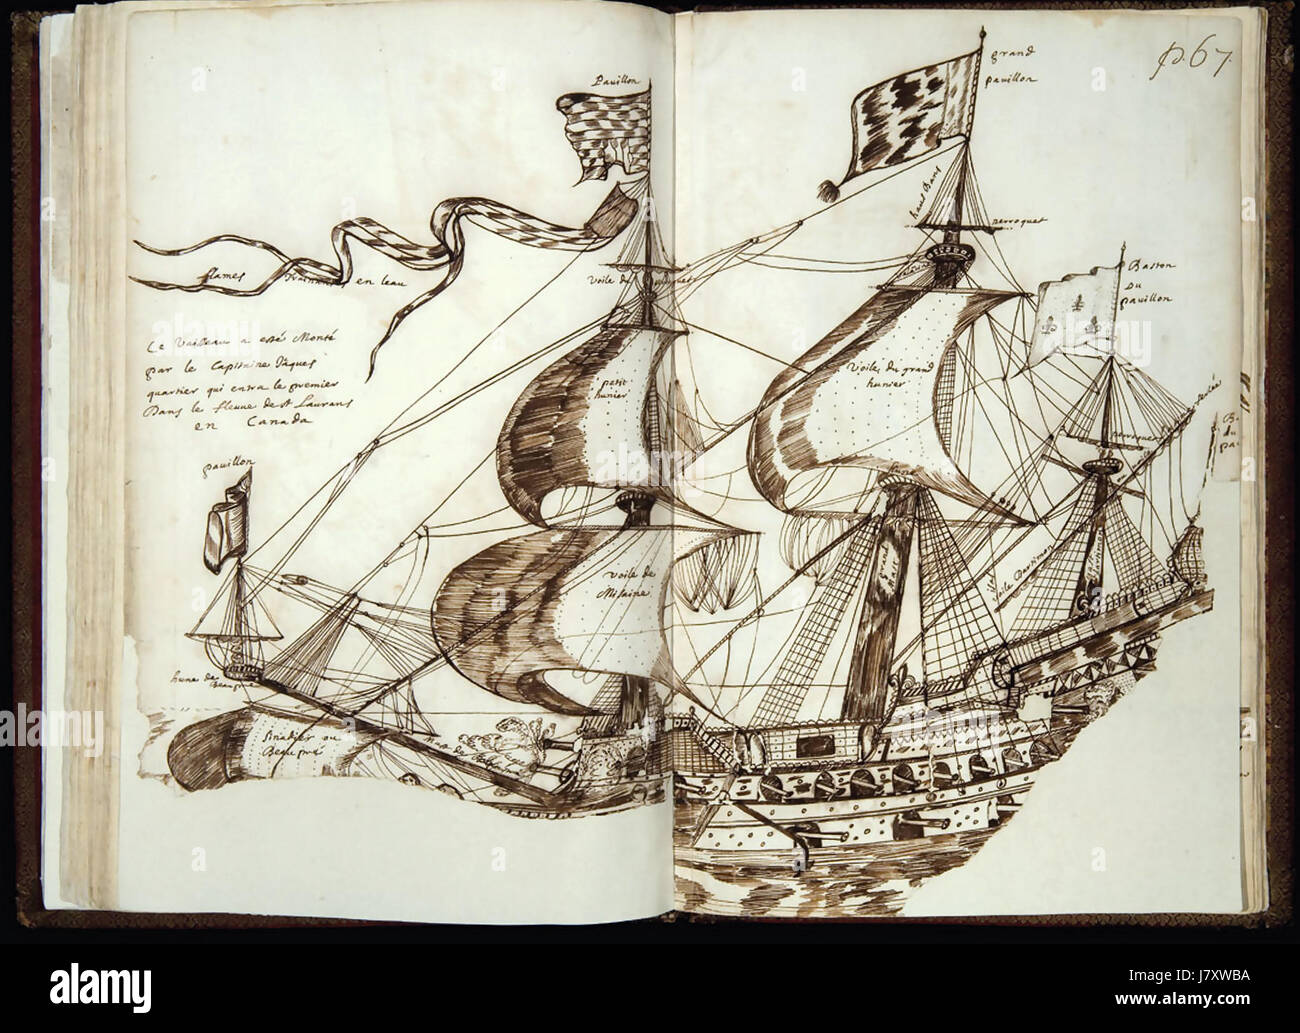 p. 67.
Pavillon
grand
pavillon
haut Bans
perroquet
Baston
du
pavillon
flames
en leau
Voile de
Le Vaisseau a esté Monté
par le Capitaine Jâques
quartier qui entra le premier
Dans le fleuve de st Laurans
en Canada
petit
hunier
Voiles du grand
hunier
perroquet
B
du
pa
pavillon
Voile de
Misaine
Voile Dartimon
hune de
Beaupré
Sivadier ou
Beaupré
alamy
a
a
alamy
Image ID: J7XWBA
www.alamy.com